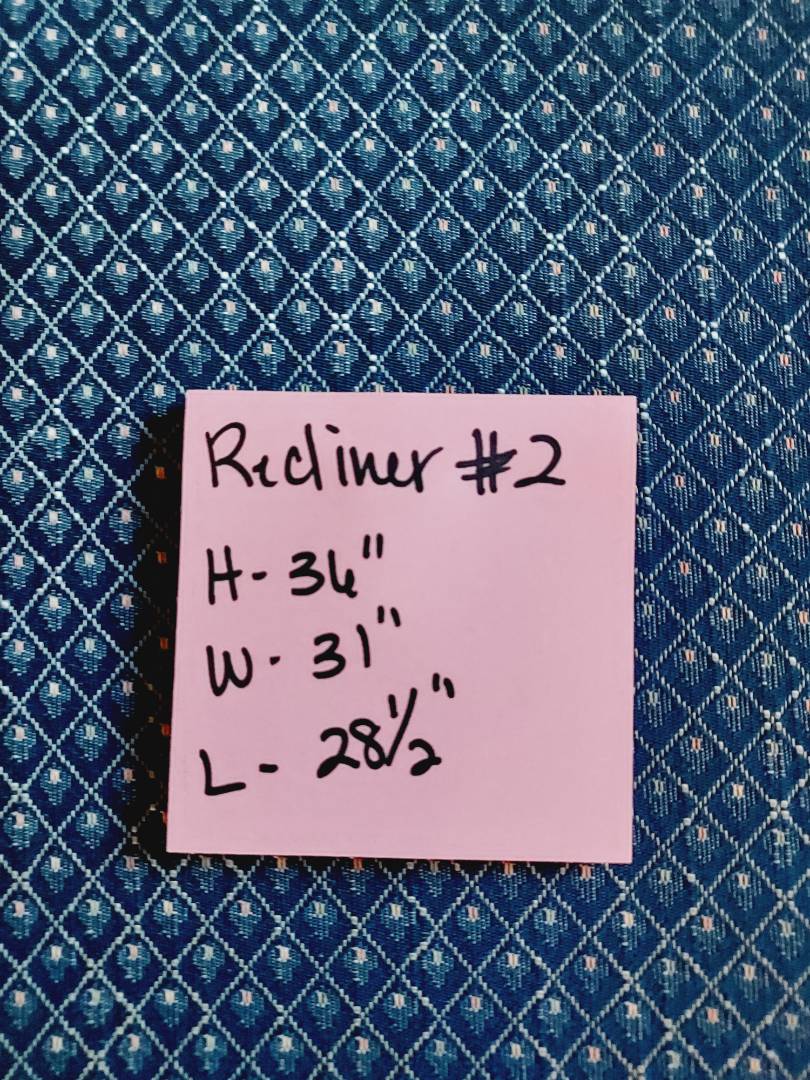 Recliner #2
H- 36"
W- 31"
L- 28 1/2"